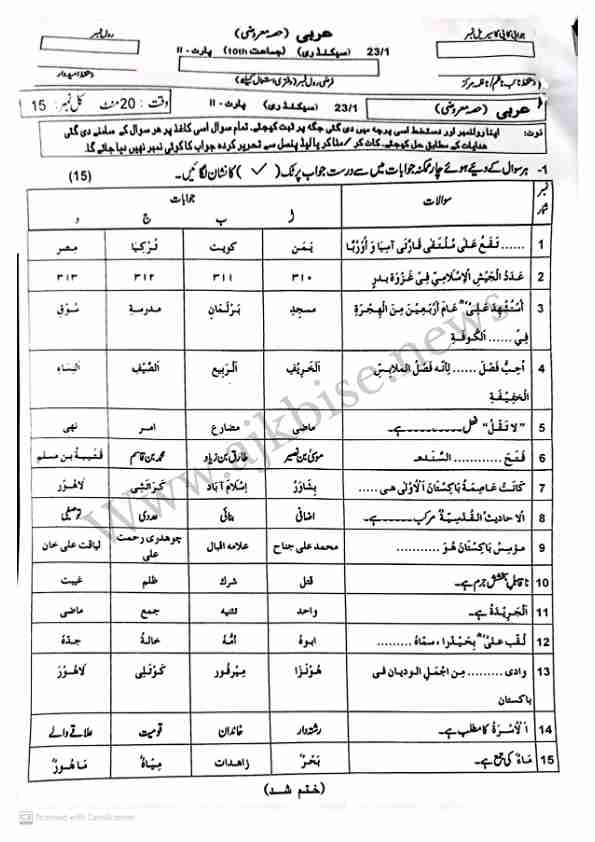 جوابی کاپی کا سیریل نمبر
23/1 (سیکنڈری) (جماعت 10th) پارٹ - II
عربی (حصہ معروضی)
رول نمبر
فرضی رول نمبر (دفتری استعمال کیلئے)
عربی (حصہ معروضی) 23/1 (سیکنڈری) پارٹ - II وقت : 20 منٹ کل نمبر : 15
نوٹ: اپنا رولنمبر اور دستخط اسی پرچہ میں دی گئی جگہ پر ثبت کیجئے۔ تمام سوال اسی کاغذ پر ھر سوال کے سامنے دی گئی
ھدایات کے مطابق حل کیجئے۔ کاٹ کر / مٹا کر یا لیڈ پنسل سے تحریر کردہ جواب کا کوئی نمبر نہیں دیا جائے گا۔
1- ہر سوال کے دیئے ہوئے چار ممکنہ جوابات میں سے درست جواب پر ٹک ( ✓ ) کا نشان لگائیں۔ (15)
نمبر شمار سوالات جوابات
ا ب ج د
1 ...... تَقَعُ عَلٰی مُلْتَقٰی قَارَّتَی آسِیَا وَ اُوْرُبَّا یَمَن کویت تُرْکِیَا مِصْر
2 عَدَدُ الْجَیْشِ الْاِسْلَامِیِّ فِیْ غَزْوَۃِ بَدْرٍ ۳۱۰ ۳۱۱ ۳۱۲ ۳۱۳
3 اُسْتُشْهِدَ عَلِیٌّ عَامَ أَرْبَعِیْنَ مِنَ الْهِجْرَةِ مسجدِ بَرْلَمَانِ مدرسةِ سُوْقِ
فِیْ ...... اَلْکُوْفَةِ
4 اُحِبُّ فَصْلَ ...... لِاَنَّهٗ فَصْلُ الْمَلَابِسِ اَلْخَرِیْفِ اَلرَّبِیْعِ اَلصَّیْفِ الشتاء
الْخَفِیْفَةِ
5 "لَا تَقُلْ" فعل ..........ہے۔ ماضی مضارع امر نہی
6 فَتَحَ ............ السِّنْدَ۔ موسیٰ بن نصیر طارق بن زیاد محمد بن قاسم قتیبة بن مسلم
7 کَانَتْ عَاصِمَةُ بَاکِسْتَانَ الْاُوْلٰی هِیَ ..... بِشَاوَرْ اِسْلَام آبَاد کَرَاتْشِی لَاهُوْر
8 الاحادیث القدسیة مرکب ........ہے۔ اضافی بنائی عددی توصیفی
9 مؤسِّس بَاکِسْتَانَ هُوَ .......... محمد علی جناح علامہ اقبال چوھدری رحمت علی لیاقت علی خان
10 ناقابلِ بخشش جرم ہے۔ قتل شرک ظلم غیبت
11 اَلْجَرِیْدَةُ ہے۔ واحد تثنیہ جمع ماضی
12 لُقِّبَ عَلِیٌّ بِحَیْدَرَا، سمّاهُ ......... ابوهُ اُمُّهُ خالهُ جدّهُ
13 وادی ......... مِن اَجْمَلِ الودیان فی هُوْنْزَا مِیْرفُوْر کَوْتلِی لَاهُوْر
باکستان
14 اَلْاُسْرَةُ کا مطلب ہے۔ رشتہ دار خاندان قومیت علاقے والے
15 مَاءٌ کی جمع ہے۔ بَحْرٌ زاهدات مِیَاهٌ مَاهُوْرٌ
(ختم شد)
www.ajkbise.news
CS Scanned with CamScanner